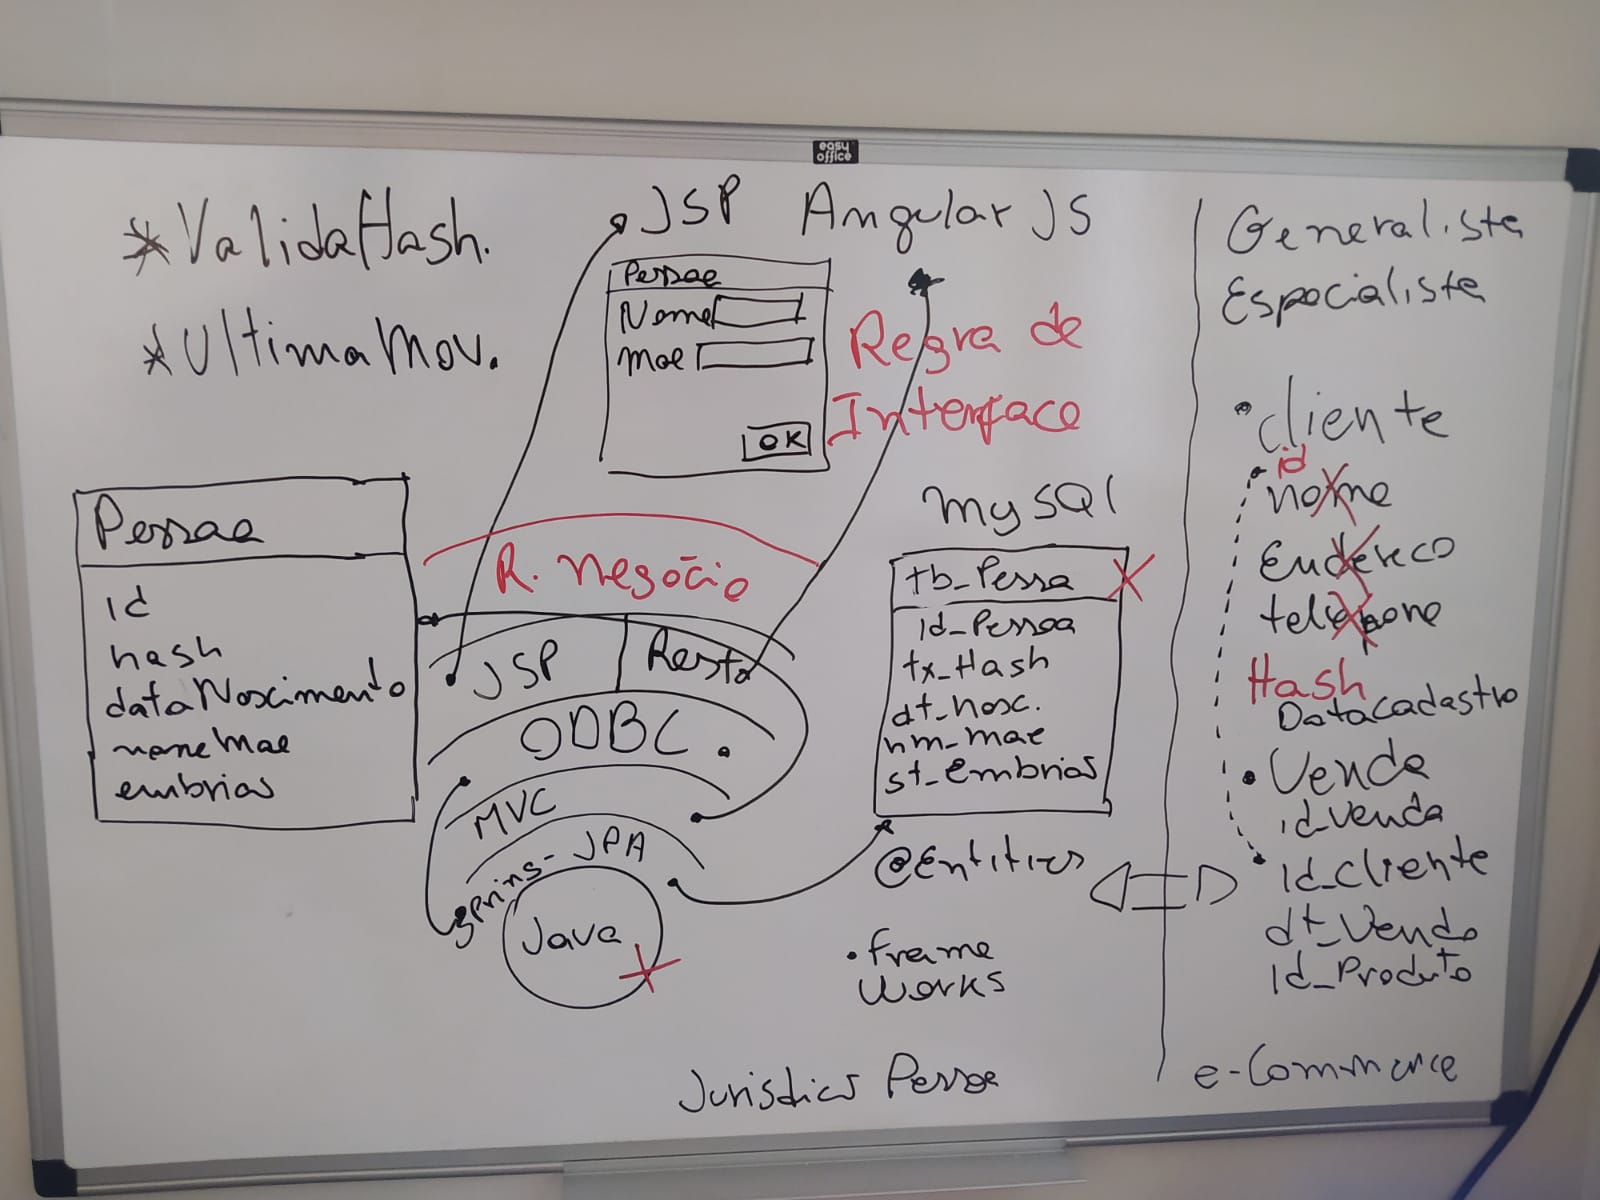 easy
office
*ValidaHash.
*UltimaMov.
JSP
Angular JS
Pessoa
Nome
Mae
OK
Regra de
Interface
Pessoa
id
hash
dataNascimento
nomeMae
embrias
R. Negócio
JSP
Resto
ODBC
MVC
JPA
Java
MySQl
tb_Pessoa
id_Pessoa
tx_Hash
dt_nasc.
nm_mae
st_embrias
@Entities
• frame
works
Generalista
Especialista
• cliente
id
nome
Endereco
telefone
Hash
DataCadastro
• Venda
id_venda
id_cliente
dt_Venda
id_Produto
e-Commerce
Pessoa